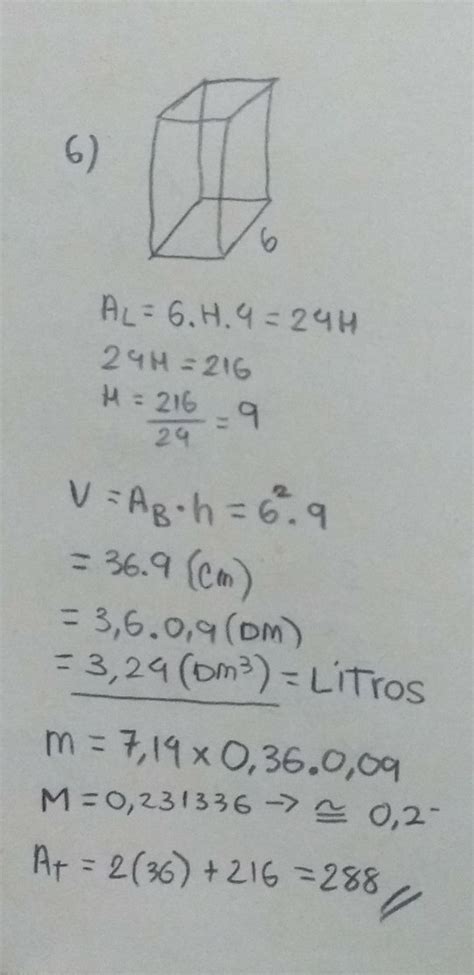 6)
6
AL = 6.H.4 = 24H
24H = 216
H = 216/24 = 9
V = AB · h = 6². 9
= 36.9 (cm)
= 3,6.0,9 (DM)
= 3,24 (Dm³) = LiTROS
m = 7,14 x 0,36.0,09
M = 0,231336 → ≅ 0,2-
AT = 2(36) + 216 = 288